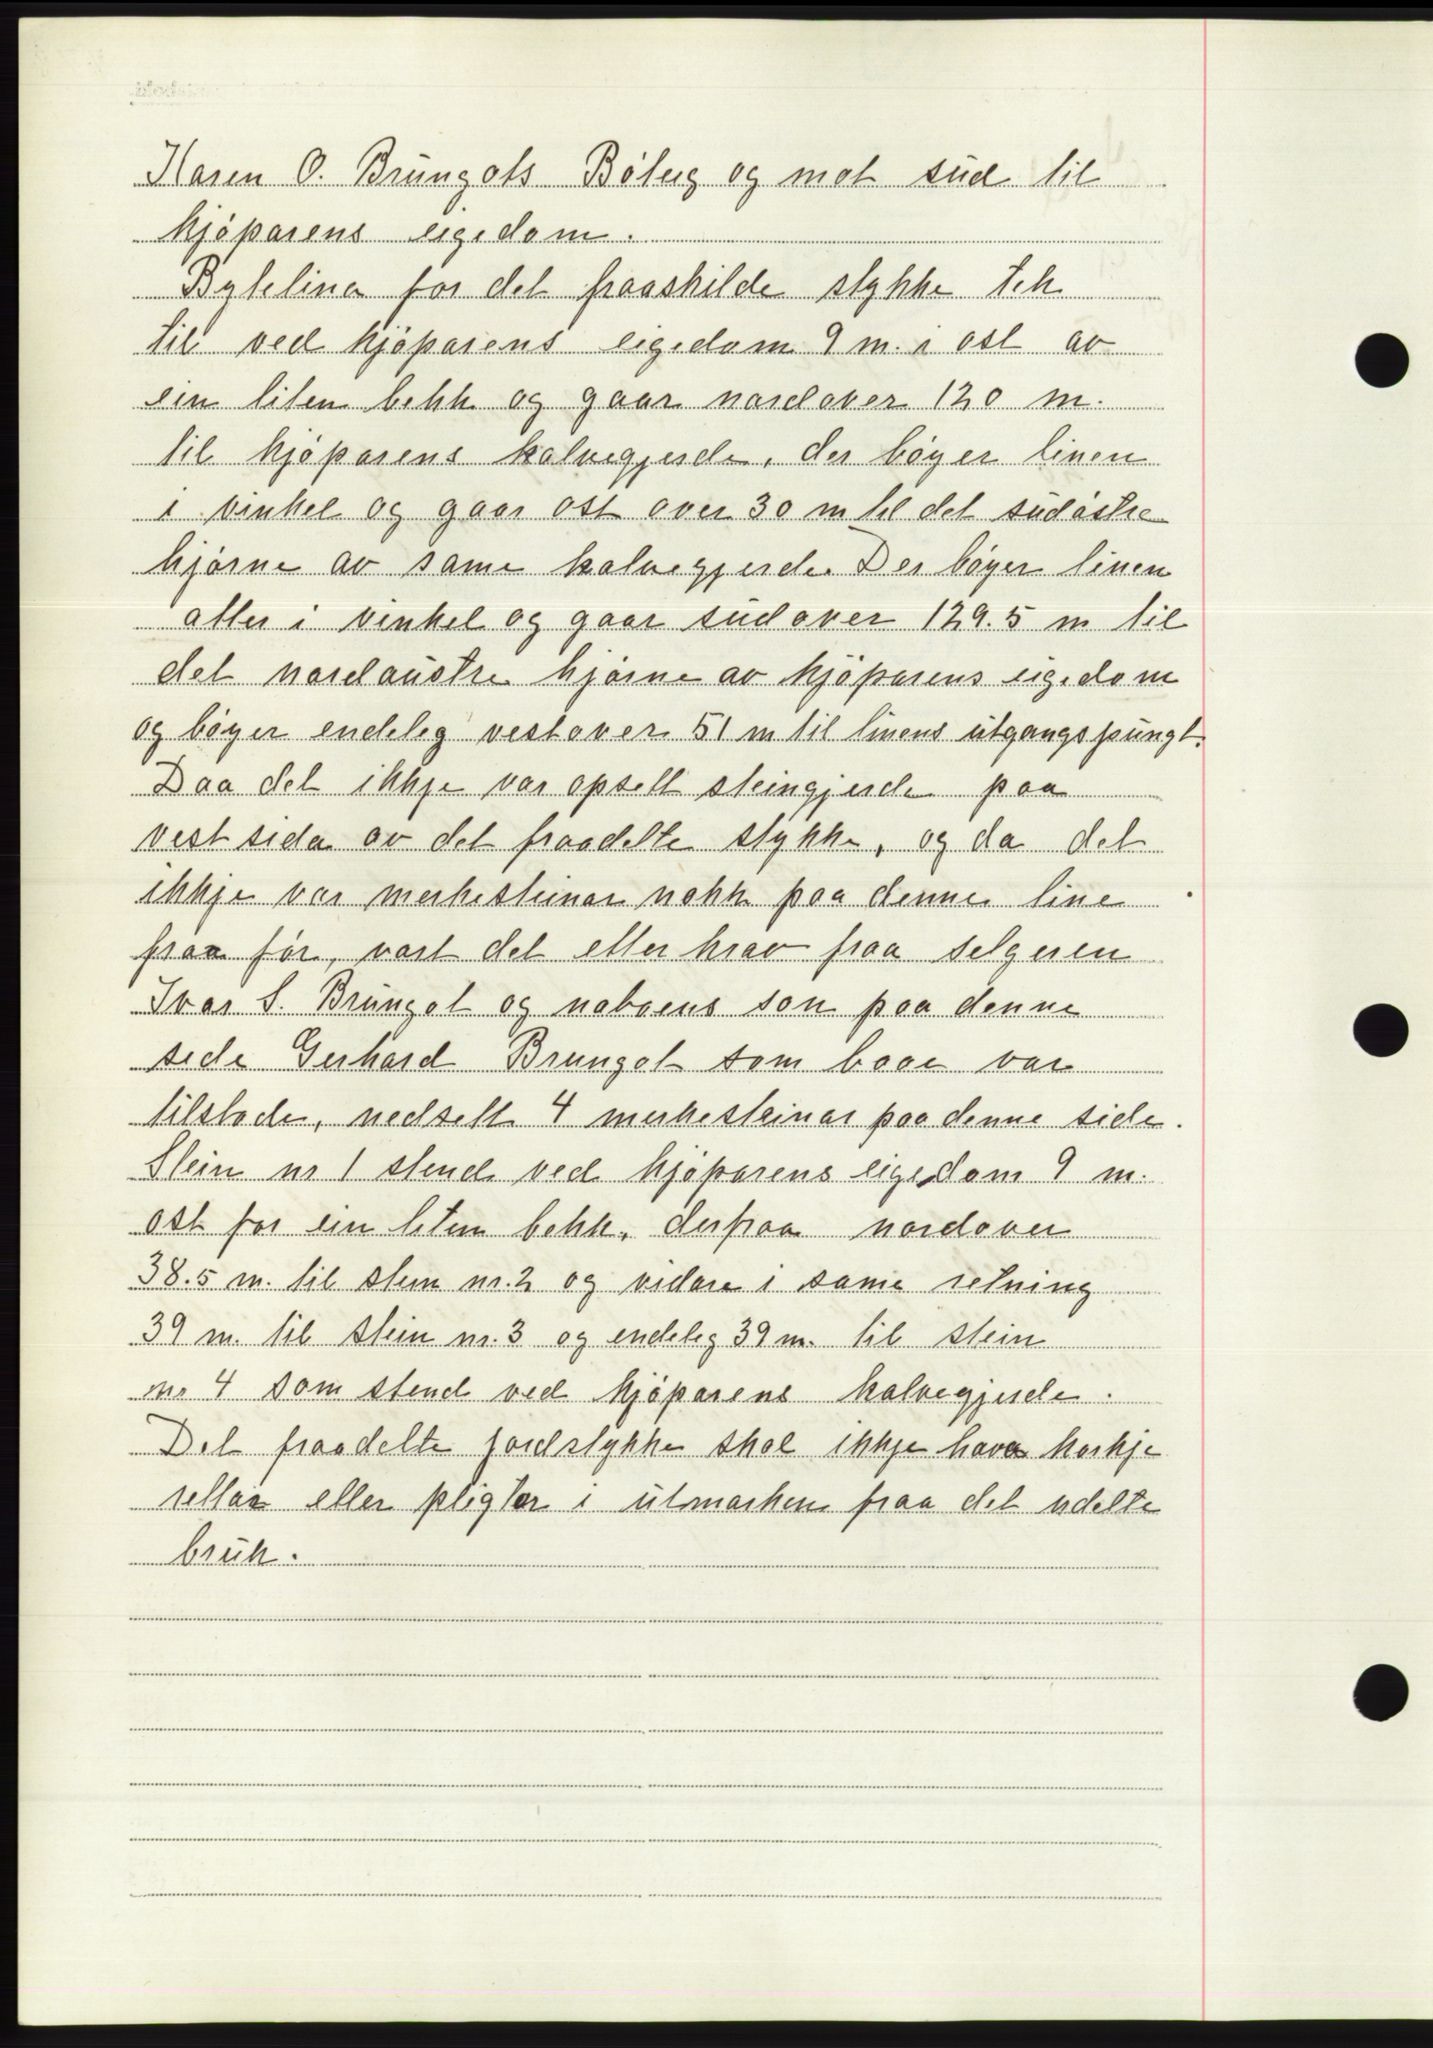 Karen O. Brungots Bøteig og mot süd til
kjøparens eigedom.
Bytelina for det fraaskilde stykke tek
til ved kjøparens eigedom 9 m. i ost av
ein liten bekk og gaar nordover 120 m.
til kjøparens kalvegjerde, der bøyer linen
i vinkel og gaar ost over 30 m til det südøstre
hjørne av same kalvegjerde. Der bøyer linen
atter i vinkel og gaar südover 129.5 m til
det nordaustre hjørne av kjøparens eigedom
og bøyer endeleg vestover 51 m til linens utgangspungt.
Daa det ikkje var opsett steingjerde paa
vestsida av det fraadelte stykke, og da det
ikkje var merkesteinar nokk paa denne line
fraa før, vart det etter krav fraa selgeren
Ivar S. Brungot og naboens son paa denne
side Gerhard Brungot som baae var
tilstade, nedsett 4 merkesteinar paa denne side.
Stein nr 1 stend ved kjøparens eigedom 9 m.
ost for ein liten bekk, derfraa nordover
38.5 m. til stein nr. 2 og vidare i same retning
39 m. til stein nr. 3 og endeleg 39 m. til stein
nr 4 som stend ved kjøparens kalvegjerde.
Det fraadelte jordstykke skal ikkje hava korkje
rettar eller pligter i utmarken fraa det udelte
brük.